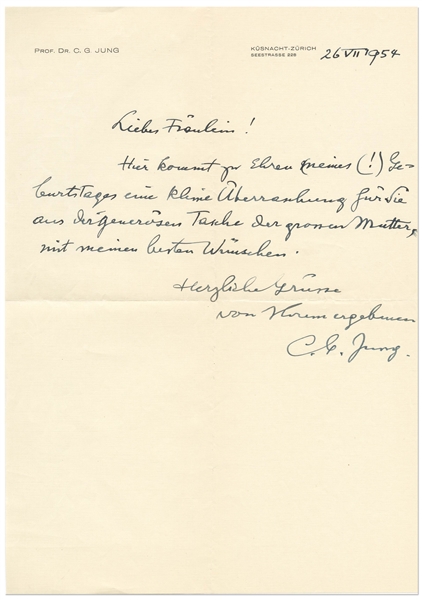 PROF. DR. C. G. JUNG
KÜSNACHT-ZÜRICH
SEESTRASSE 228
26 VII 1954
Liebes Fräulein!
Hier kommt zu Ehren meines (!) Ge-
burtstages eine kleine Überraschung für Sie
aus der generösen Tasche der grossen Mutter,
mit meinen besten Wünschen.
Herzliche Grüsse
von Ihrem ergebenen
C. G. Jung.